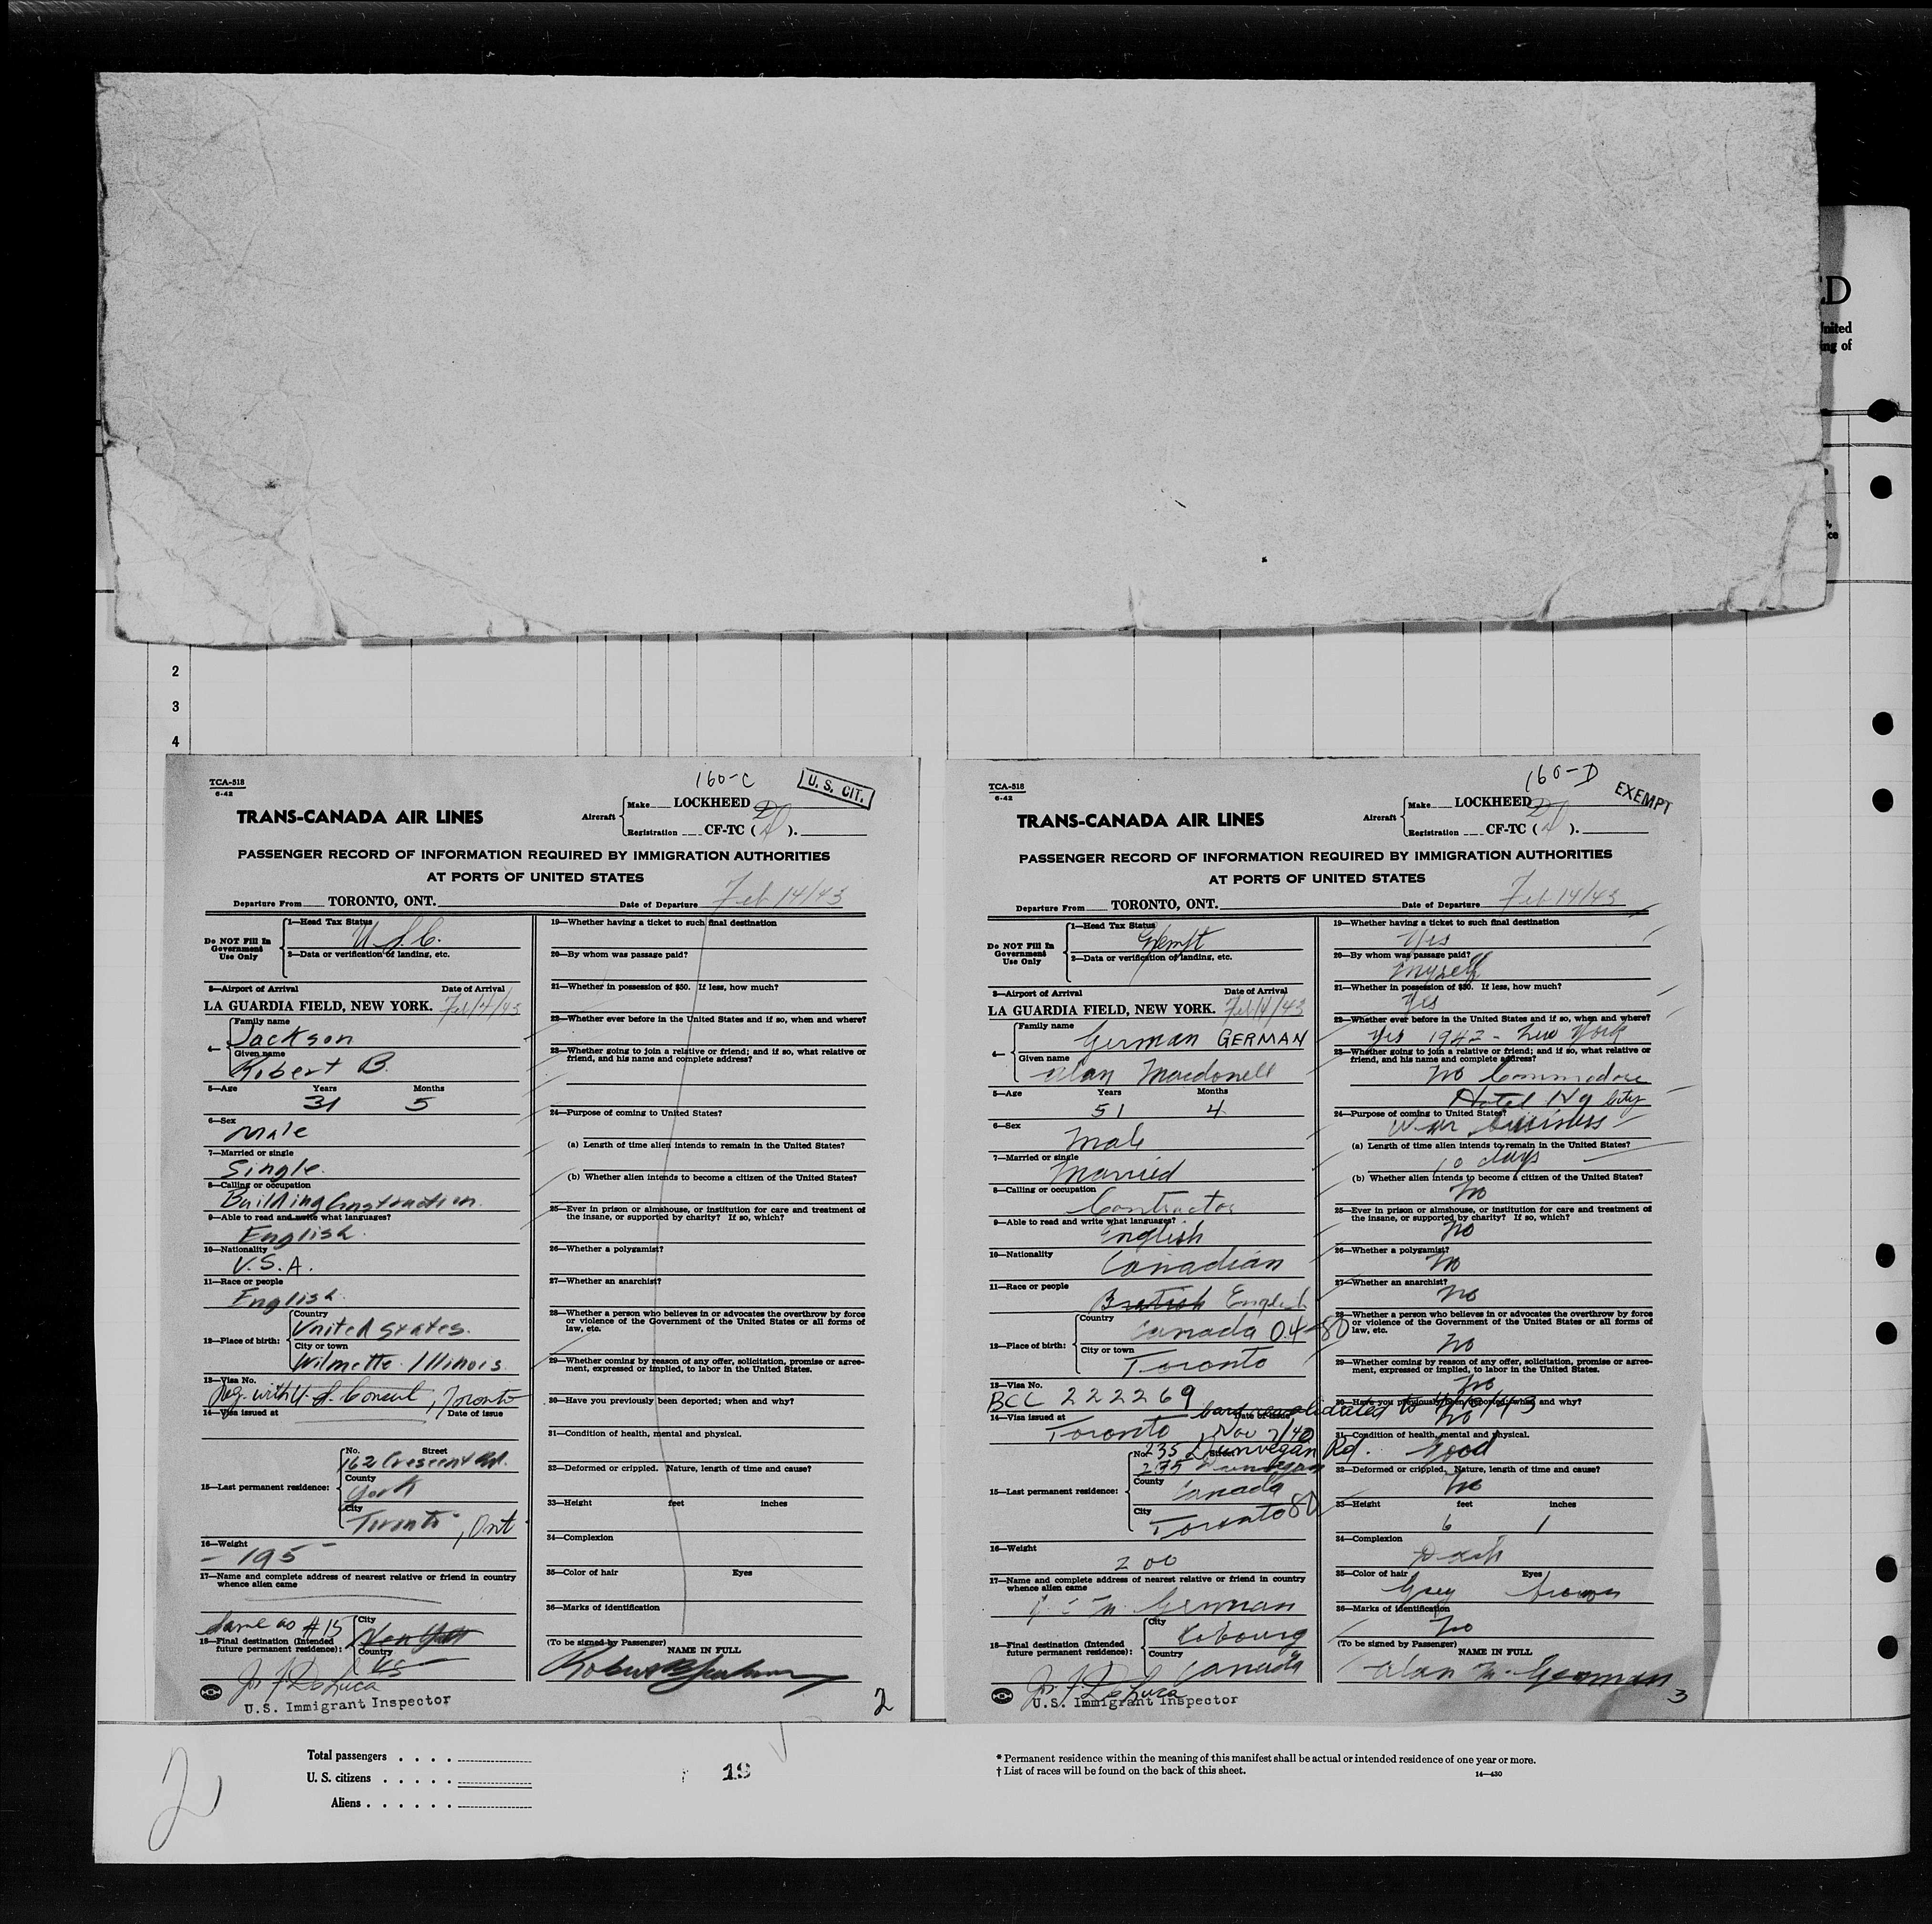 ED
United
ing of
ce
2
3
4
TCA-518
6-42
160-C
U. S. CIT.
TRANS-CANADA AIR LINES
Aircraft
Make LOCKHEED
Registration CF-TC ( ).
PASSENGER RECORD OF INFORMATION REQUIRED BY IMMIGRATION AUTHORITIES
AT PORTS OF UNITED STATES
Departure From TORONTO, ONT. Date of Departure Feb 14/43
Do NOT Fill In Government Use Only
1—Head Tax Status
U.S.C.
2—Data or verification of landing, etc.
3—Airport of Arrival Date of Arrival
LA GUARDIA FIELD, NEW YORK. Feb/14/43
4—
Family name
Jackson
Given name
Robert B.
5—Age Years Months
31 5
6—Sex
Male
7—Married or single
Single.
8—Calling or occupation
Building Construction.
9—Able to read and write what languages?
English.
10—Nationality
U.S.A.
11—Race or people
English.
12—Place of birth:
Country
United States.
City or town
Wilmette. Illinois.
13—Visa No.
Reg. with U.S. Consul, Toronto
14—Visa issued at Date of issue
15—Last permanent residence:
No. Street
162 Crescent Rd.
County
York
City
Toronto, Ont.
16—Weight
- 195 -
17—Name and complete address of nearest relative or friend in country
whence alien came
Same as #15
18—Final destination (Intended
future permanent residence):
City
New York
Country
US
U.S. Immigrant Inspector
19—Whether having a ticket to such final destination
20—By whom was passage paid?
21—Whether in possession of $50. If less, how much?
22—Whether ever before in the United States and if so, when and where?
23—Whether going to join a relative or friend; and if so, what relative or
friend, and his name and complete address?
24—Purpose of coming to United States?
(a) Length of time alien intends to remain in the United States?
(b) Whether alien intends to become a citizen of the United States?
25—Ever in prison or almshouse, or institution for care and treatment of
the insane, or supported by charity? If so, which?
26—Whether a polygamist?
27—Whether an anarchist?
28—Whether a person who believes in or advocates the overthrow by force
or violence of the Government of the United States or all forms of
law, etc.
29—Whether coming by reason of any offer, solicitation, promise or agree-
ment, expressed or implied, to labor in the United States.
30—Have you previously been deported; when and why?
31—Condition of health, mental and physical.
32—Deformed or crippled. Nature, length of time and cause?
33—Height feet inches
34—Complexion
35—Color of hair Eyes
36—Marks of identification
(To be signed by Passenger) NAME IN FULL
2
TCA-518
6-42
160-D
EXEMPT
TRANS-CANADA AIR LINES
Aircraft
Make LOCKHEED
Registration CF-TC ( ).
PASSENGER RECORD OF INFORMATION REQUIRED BY IMMIGRATION AUTHORITIES
AT PORTS OF UNITED STATES
Departure From TORONTO, ONT. Date of Departure Feb 14/43
Do NOT Fill In Government Use Only
1—Head Tax Status
Exempt
2—Data or verification of landing, etc.
3—Airport of Arrival Date of Arrival
LA GUARDIA FIELD, NEW YORK. Feb/14/43
4—
Family name
German GERMAN
Given name
Alan Macdonell
5—Age Years Months
51 4
6—Sex
Male
7—Married or single
Married
8—Calling or occupation
Contractor
9—Able to read and write what languages?
English
10—Nationality
Canadian
11—Race or people
British English
12—Place of birth:
Country
Canada 04-80
City or town
Toronto
13—Visa No.
BCC 222269
card revalidated to 4/8/43
14—Visa issued at Date of issue
Toronto, Nov 7/40
15—Last permanent residence:
No. Street
235 Dunvegan Rd.
235 Dunvegan
County
Canada
City
Toronto 80
16—Weight
200
17—Name and complete address of nearest relative or friend in country
whence alien came
German
18—Final destination (Intended
future permanent residence):
City
Cobourg
Country
Canada
U.S. Immigrant Inspector
19—Whether having a ticket to such final destination
Yes
20—By whom was passage paid?
Myself
21—Whether in possession of $50. If less, how much?
Yes
22—Whether ever before in the United States and if so, when and where?
Yes 1942 - New York
23—Whether going to join a relative or friend; and if so, what relative or
friend, and his name and complete address?
No Commodore
Hotel Ny City
24—Purpose of coming to United States?
War business
(a) Length of time alien intends to remain in the United States?
10 days
(b) Whether alien intends to become a citizen of the United States?
No
25—Ever in prison or almshouse, or institution for care and treatment of
the insane, or supported by charity? If so, which?
No
26—Whether a polygamist?
No
27—Whether an anarchist?
No
28—Whether a person who believes in or advocates the overthrow by force
or violence of the Government of the United States or all forms of
law, etc.
No
29—Whether coming by reason of any offer, solicitation, promise or agree-
ment, expressed or implied, to labor in the United States.
No
30—Have you previously been deported; when and why?
No
31—Condition of health, mental and physical.
Good
32—Deformed or crippled. Nature, length of time and cause?
No
33—Height feet inches
6 1
34—Complexion
Dark
35—Color of hair Eyes
Grey brown
36—Marks of identification
No
(To be signed by Passenger) NAME IN FULL
Alan M. German
3
2
Total passengers
U. S. citizens
Aliens
19
* Permanent residence within the meaning of this manifest shall be actual or intended residence of one year or more.
† List of races will be found on the back of this sheet.
14—430